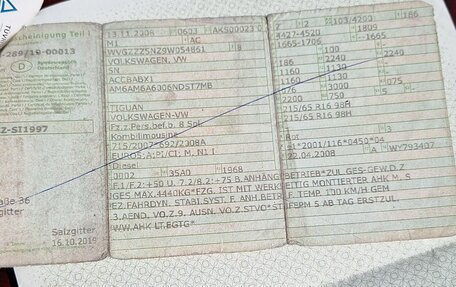 scheinigung Teil I
-289/19-00013
D
Bundesrepublik
Deutschland
Z-SI1997
aße 36
gitter
Salzgitter
16.10.2019
13.11.2006
0603
AKS00023 0
M1
AC
WVGZZZ5NZ9W054861
8
VOLKSWAGEN, VW
5N
ACCBABX1
AM6AM6A6306NDST7MB
TIGUAN
VOLKSWAGEN-VW
Fz.z.Pers.bef.b. 8 Spl.
Kombilimousine
715/2007*692/2008A
EURO5;A;PI/CI; M, N1 I
Diesel
0002
35A0
1968
2
103/4200
186
4427-4520
1809
1665-1706
--1665
100
186
2240
2240
1160
1130
1160
1130
076
3000
075
2200
750
5
215/65 R16 98H
215/65 R16 98H
Rot
3
e1*2001/116*0450*04
22.04.2008
A
WY793407
F.1/F.2:+50 U. 7.2/8.2:+75 B.ANHÄNGERBETRIEB*ZUL. GES-GEW.D.Z
UGES MAX.4440KG*FZG. IST MIT WERKSEITIG MONTIERTER AHK M. S
PEZ.FAHRDYN. STABI.SYST. F. ANH.BETRIEF. TEMP. 100 KM/H GEM
.3.AEND. VO.Z.9. AUSN. VO.Z.STVO*STIFBPM S AB TAG ERSTZUL.
WW.AHK LT.EGTG*